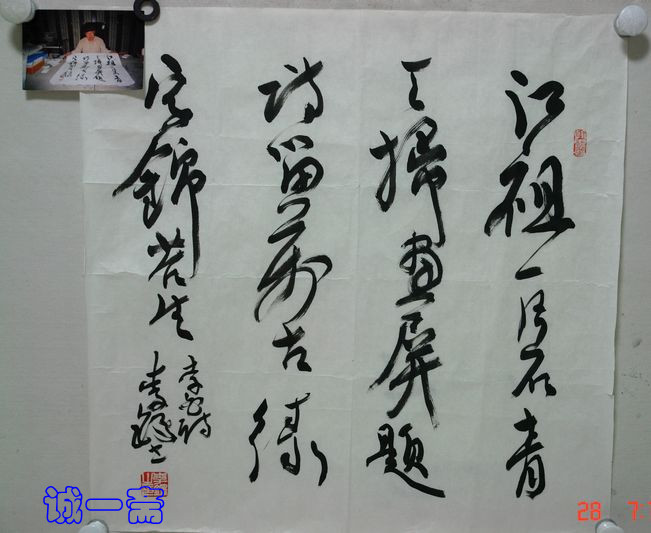 江祖一片石青
天掃畫屏題
詩留萬古綠
字錦苔生
李白詩
李鐸书
诚一斋
28 7: